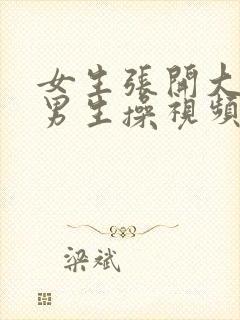 女生張開大
男生操視頻
梁斌